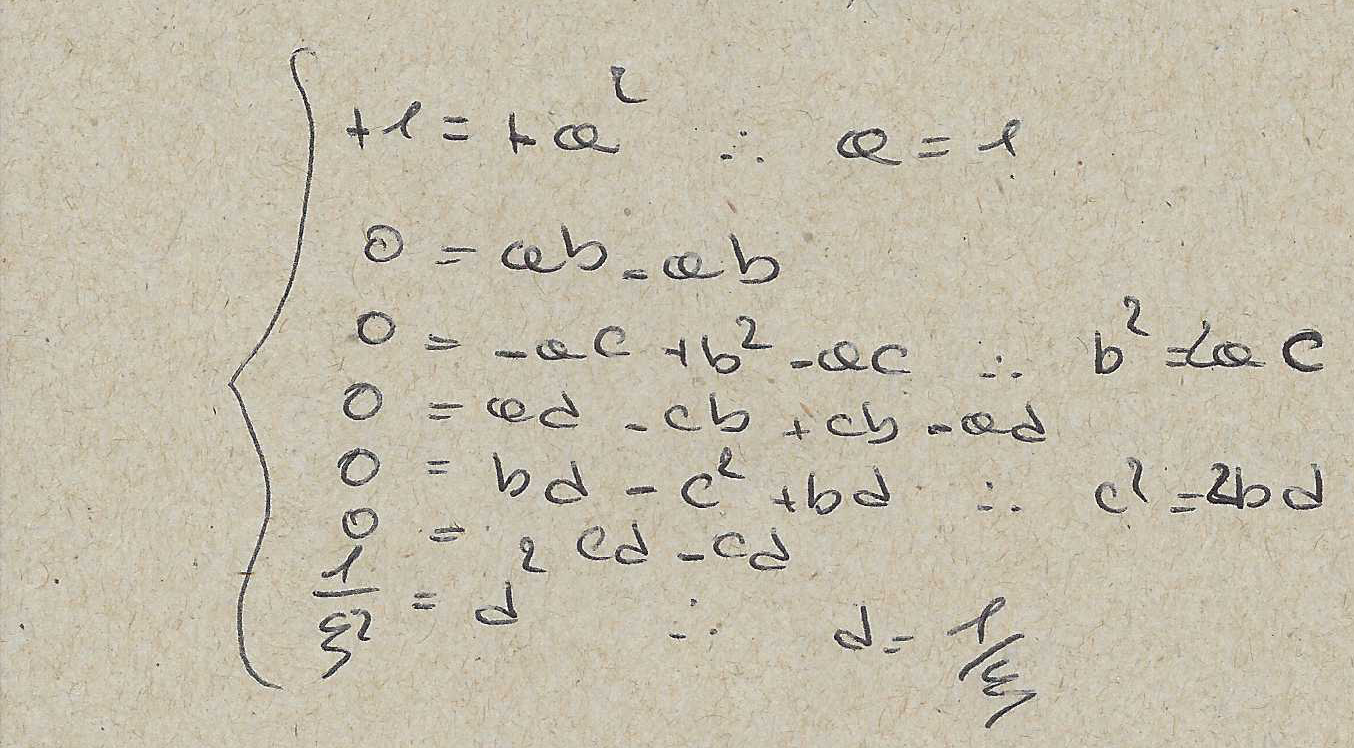 +1 = +a² ∴ a = 1
0 = ab - ab
0 = -ac + b² - ac ∴ b² = 2ac
0 = ad - cb + cb - ad
0 = bd - c² + bd ∴ c² = 2bd
0 = cd - cd
1/ξ² = d² ∴ d = 1/ξ